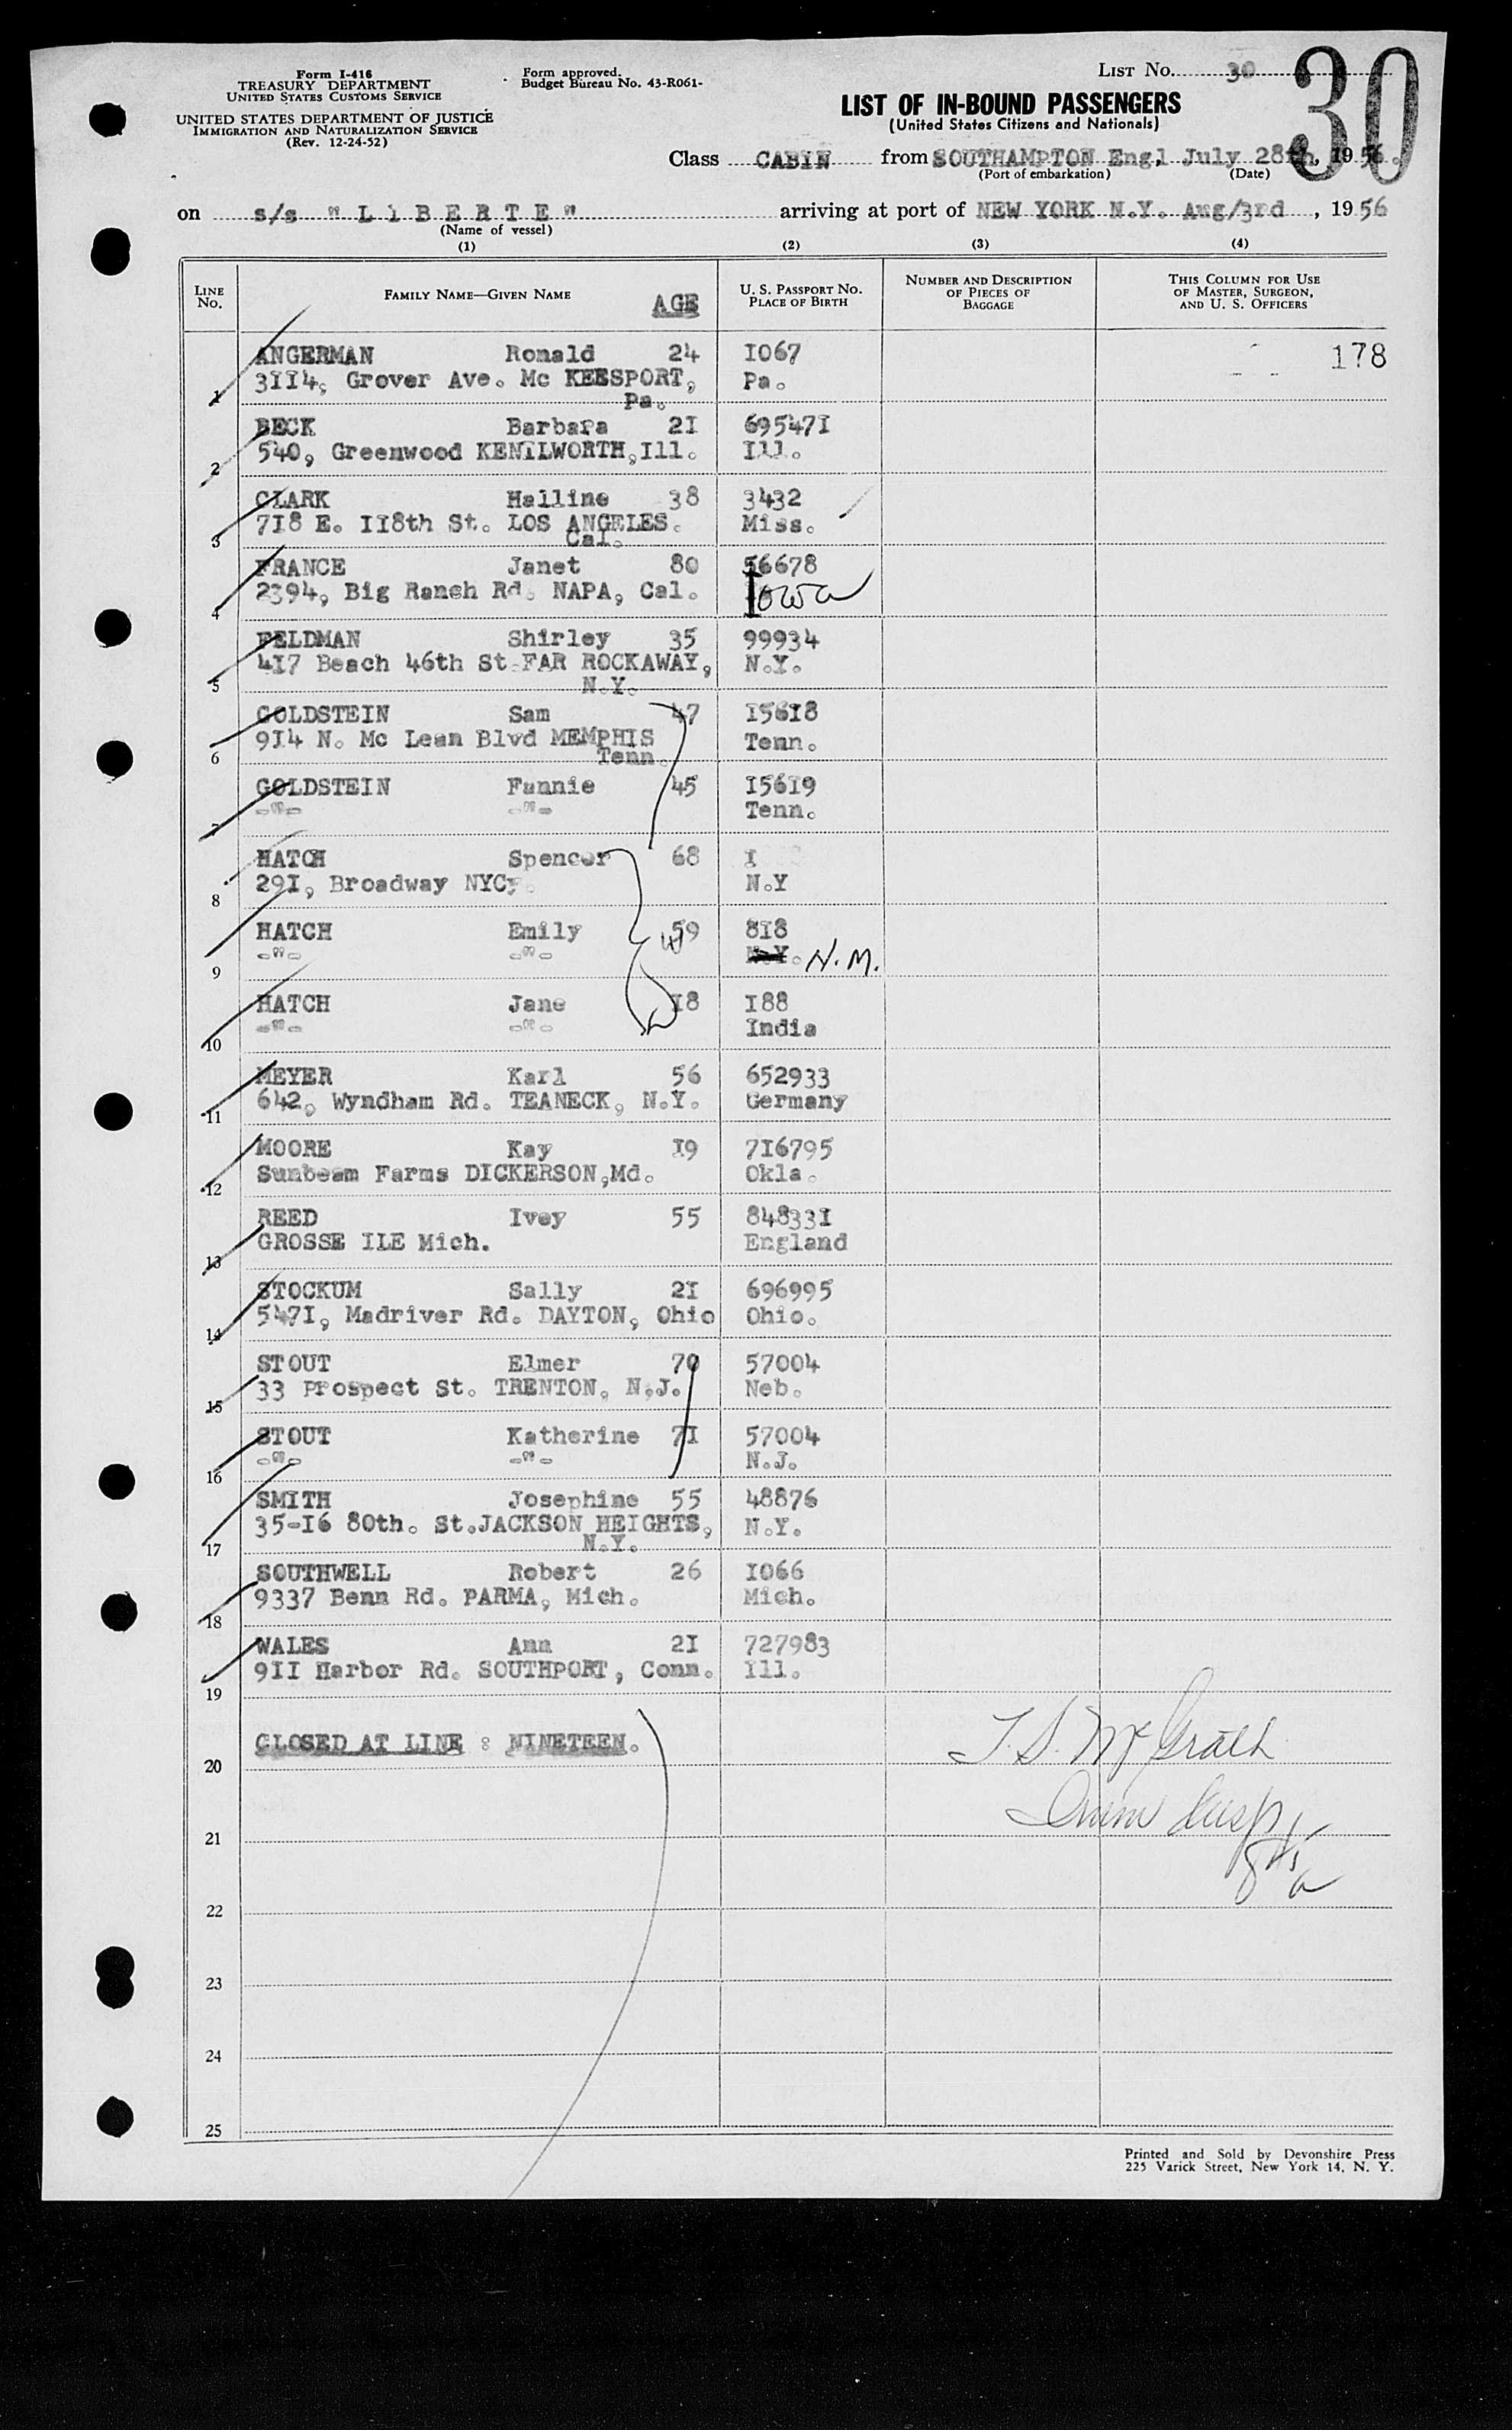 Form I-416
TREASURY DEPARTMENT
UNITED STATES CUSTOMS SERVICE
UNITED STATES DEPARTMENT OF JUSTICE
IMMIGRATION AND NATURALIZATION SERVICE
(Rev. 12-24-52)
Form approved.
Budget Bureau No. 43-R061-
LIST NO. 30
30
LIST OF IN-BOUND PASSENGERS
(United States Citizens and Nationals)
Class CABIN from SOUTHAMPTON Engl July 28th, 1956.
(Port of embarkation) (Date)
on s/s "LIBERTE" arriving at port of NEW YORK N.Y. Aug/3rd, 1956
(Name of vessel)
(1) (2) (3) (4)
LINE No. FAMILY NAME—GIVEN NAME AGE U. S. PASSPORT NO. PLACE OF BIRTH NUMBER AND DESCRIPTION OF PIECES OF BAGGAGE THIS COLUMN FOR USE OF MASTER, SURGEON, AND U. S. OFFICERS
ANGERMAN Ronald 24 I067 178
3II4, Grover Ave. Mc KEESPORT, Pa.
1 Pa.
BECK Barbara 2I 69547I
2 540, Greenwood KENILWORTH,Ill. Ill.
CLARK Halline 38 3432
7I8 E. II8th St. LOS ANGELES. Miss.
3 Cal.
FRANCE Janet 80 56678
2394, Big Ranch Rd. NAPA, Cal. Iowa
4
FELDMAN Shirley 35 99934
4I7 Beach 46th St FAR ROCKAWAY, N.Y.
5 N.Y.
GOLDSTEIN Sam 47 I56I8
9I4 N. Mc Lean Blvd MEMPHIS Tenn.
6 Tenn.
GOLDSTEIN Fannie 45 I56I9
-"- -"- Tenn.
7
HATCH Spencer 68 I
29I, Broadway NYC. N.Y
8
HATCH Emily 59 8I8
-"- -"- N.Y. N.M.
9
HATCH Jane I8 I88
-"- -"- India
10
MEYER Karl 56 652933
11 642, Wyndham Rd. TEANECK, N.Y. Germany
MOORE Kay I9 7I6795
12 Sunbeam Farms DICKERSON,Md. Okla.
REED Ivey 55 84833I
13 GROSSE ILE Mich. England
STOCKUM Sally 2I 696995
14 547I, Madriver Rd. DAYTON, Ohio Ohio.
STOUT Elmer 70 57004
15 33 Prospect St. TRENTON, N.J. Neb.
STOUT Katherine 7I 57004
16 -"- -"- N.J.
SMITH Josephine 55 48876
35-I6 80th. St.JACKSON HEIGHTS, N.Y.
17 N.Y.
SOUTHWELL Robert 26 I066
18 9337 Benn Rd. PARMA, Mich. Mich.
WALES Ann 2I 727983
9II Harbor Rd. SOUTHPORT, Conn. Ill.
19
CLOSED AT LINE : NINETEEN. T.S. McGrath
20
Imm Insp
21
22
23
24
25
Printed and Sold by Devonshire Press
225 Varick Street, New York 14, N. Y.